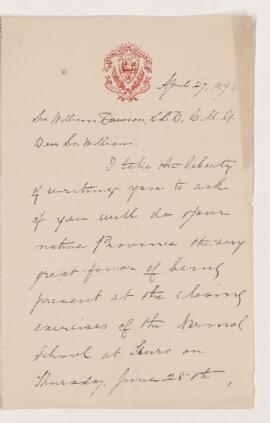 April 27, 189
Sir William Dawson, LL.D, C.M.G.
Dear Sir William,
I take the liberty
of writing you to ask
if you will do your
native Province the very
great favor of being
present at the closing
exercises of the Normal
School at Truro on
Thursday, June 28th,